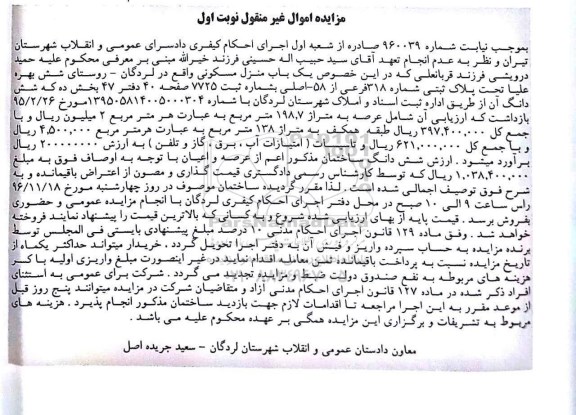 مزایده اموال غیر منقول نوبت اول
بموجب نیابت شماره ۹۶۰۰۳۹ صادره از شعبه اول اجرای احکام کیفری دادسرای عمومی و انقلاب شهرستان
تیران و نظر به عدم انجام تعهد آقای سید حبیب اله حسینی فرزند خیرالله مبنی بر معرفی محکوم علیه حمید
درویشی فرزند قربانعلی که در این خصوص یک باب منزل مسکونی واقع در لردگان - روستای شش بهره
علیا تحت پلاک ثبتی شماره ۳۱۸فرعی از ۵۸-اصلی بشماره ثبت ۷۷۲۵ صفحه ۴۰ دفتر ۴۷ بخش ده که شش
دانگ آن از طریق اداره ثبت اسناد و املاک شهرستان لردگان با شماره ۱۳۹۵۰۵۸۱۴۰۰۵۰۰۰۳۰۴مورخ ۹۵/۲/۲۶
بازداشت که ارزیابی آن شامل عرصه به متراژ ۱۹۸,۷ متر مربع به عبارت هر متر مربع ۲ میلیون ریال و با
جمع کل ۳۹۷,۴۰۰,۰۰۰ ریال طبقه همکف به متراژ ۱۳۸ متر مربع به عبارت هرمتر مربع ۴,۵۰۰,۰۰۰ ریال
و با جمع کل ۶۲۱,۰۰۰,۰۰۰ ریال و انشعابات ( امتیازات آب . برق : گاز و تلفن ) به ارزش ۲۰۰۰۰۰۰۰ ریال
برآورد میشود . ارزش شش دانگ ساختمان مذکور اعم از عرصه و اعیان با توجه به اوصاف فوق به مبلغ
۱,۰۳۸,۴۰۰,۰۰۰ ریال که توسط کارشناس رسمی دادگستری قیمت گذاری و مصون از اعتراض باقیمانده و به
شرح فوق توصیف اجمالی شده است . لذا مقرر گردیده ساختمان موصوف در روز چهارشنبه مورخ ۹۶/۱۱/۱۸
راس ساعت ۹ الی ۱۰ صبح در محل دفتر اجرای احکام کیفری لردگان با انجام مزایده عمومی و حضوری
بفروش برسد . قیمت پایه از بهای ارزیابی شده شروع و به کسانی که بالاترین قیمت را پیشنهاد نمایند فروخته
خواهد شد . وفق ماده ۱۲۹ قانون اجرای احکام مدنی ۱۰ درصد مبلغ پیشنهادی بایستی فی المجلس توسط
برنده مزایده به حساب سپرده واریز و فیش آن به دفتر اجرا تحویل گردد . خریدار میتواند حداکثر یکماه از
تاریخ مزایده نسبت به پرداخت باقیمانده ثمن معامله اقدام نماید در غیر اینصورت مبلغ واریزی اولیه با کسر
هزینه های مربوطه به نفع صندوق دولت ضبط و مزایده تجدید می گردد . شرکت برای عمومی به استثنای
افراد ذکر شده در ماده ۱۲۷ قانون اجرای احکام مدنی آزاد و متقاضیان شرکت در مزایده میتوانند پنج روز قبل
از موعد مقرر به این اجرا مراجعه تا اقدامات لازم جهت بازدید ساختمان مذکور انجام پذیرد . هزینه های
مربوط به تشریفات و برگزاری این مزایده همگی بر عهده محکوم علیه می باشد .
معاون دادستان عمومی و انقلاب شهرستان لردگان - سعید جریده اصل